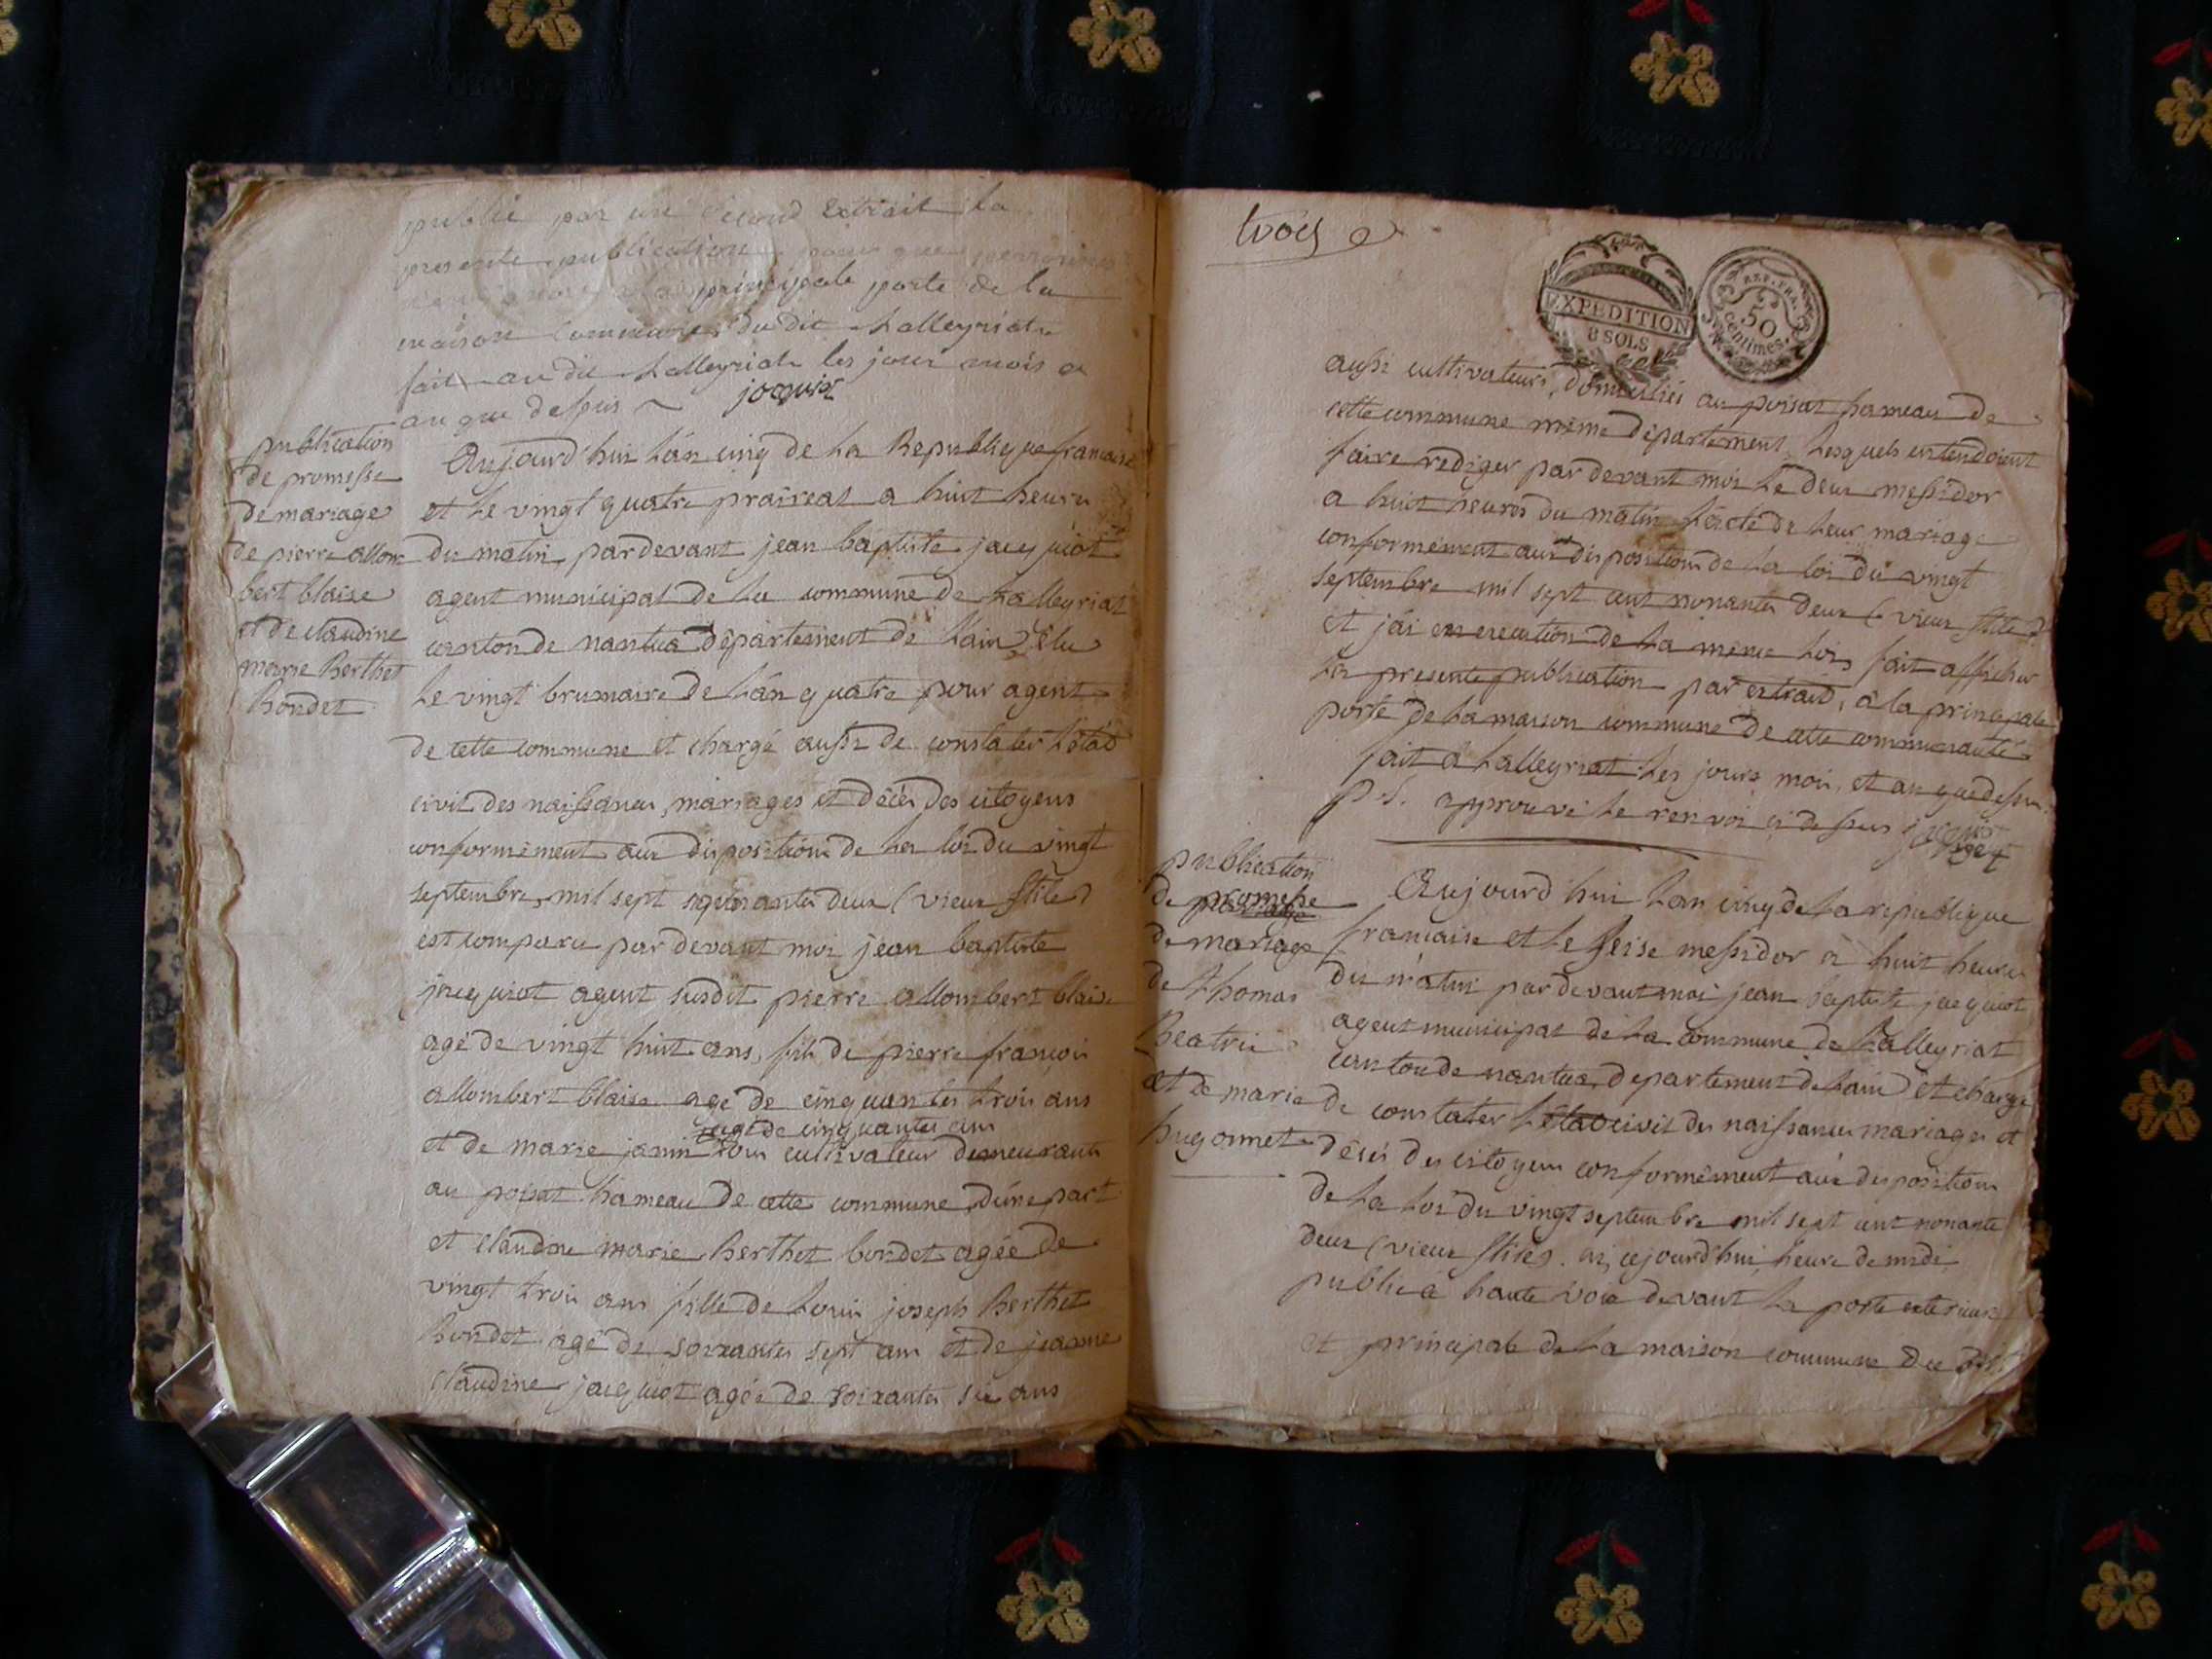 publié par un second Extrait la
presente publication
principale porte de la
maison Commune du dit Lalleyriat
fait au dit Lalleyriat les jour mois et
an que dessus
jacquiot
publication
de promesse
de mariage
de pierre allom
bert blaise
et de claudine
marie Berthet
bondet
Aujourd'hui L'an cinq de La Republique francaise
et Le vingt quatre praireal a huit heures
du matin pardevant jean baptiste jacquiot
agent municipal de La commune de Lalleyriat
canton de nantua departement de L'ain Elu
Le vingt brumaire de L'an quatre pour agent
de cette commune et chargé aussi de constater L'état
civil des naissances, mariages et décès des citoyens
conformément aux disposition de La loi du vingt
septembre mil sept nonante deux (vieux stile)
est comparu par devant moi jean baptiste
jacquiot agent susdit pierre allombert blaise
agé de vingt huit ans, fils de pierre francois
allombert blaise agé de cinquante trois ans
agé de cinquante ans
et de marie janin tous cultivateur demeurant
au poisat hameau de cette commune d'une part
et claudine marie Berthet bondet agée de
vingt trois ans fille de Louis joseph Berthet
bondet agé de soixante sept ans et de jeanne
claudine jacquiot agée de soixante six ans
trois
EXPEDITION
8 SOLS
REP. FRA.
50
centimes
aussi cultivateurs, domiciliés au poisat hameau de
cette commune même departement, Lesquels entendoient
faire rediger par devant moi Le deux messidor
a huit heures du matin L'acte de Leur mariage
conformément aux disposition de La loi du vingt
septembre mil sept cent nonante deux (vieux stile)
et j'ai en execution de La meme Lois fait afficher
La presente publication par extrait, a la principale
porte de La maison commune de cette communauté
fait a Lalleyriat Les jours mois, et an que dessus
p.s. approuvé Le renvoi ci dessus jacquiot
agent
publication
de promesse
de mariage
de thomas
Beatrix
et de marie
hugonnet
Aujourd'hui L'an cinq de La republique
francaise et Le seise messidor a huit heures
du matin par devant moi jean baptiste jacquiot
agent municipal de La commune de Lalleyriat
canton de nantua, departement de L'ain et charge
de constater L'état civil des naissances mariages et
décès des citoyens conformément aux disposition
de La Loi du vingt septembre mil sept cent nonante
deux (vieux stile). ai, cejourd'hui, heure de midi,
publié a haute voix devant La porte exterieure
et principale de La maison commune du dit